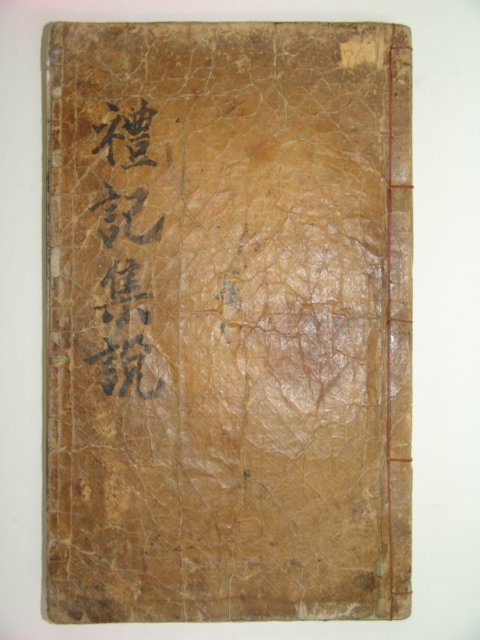 禮記集說